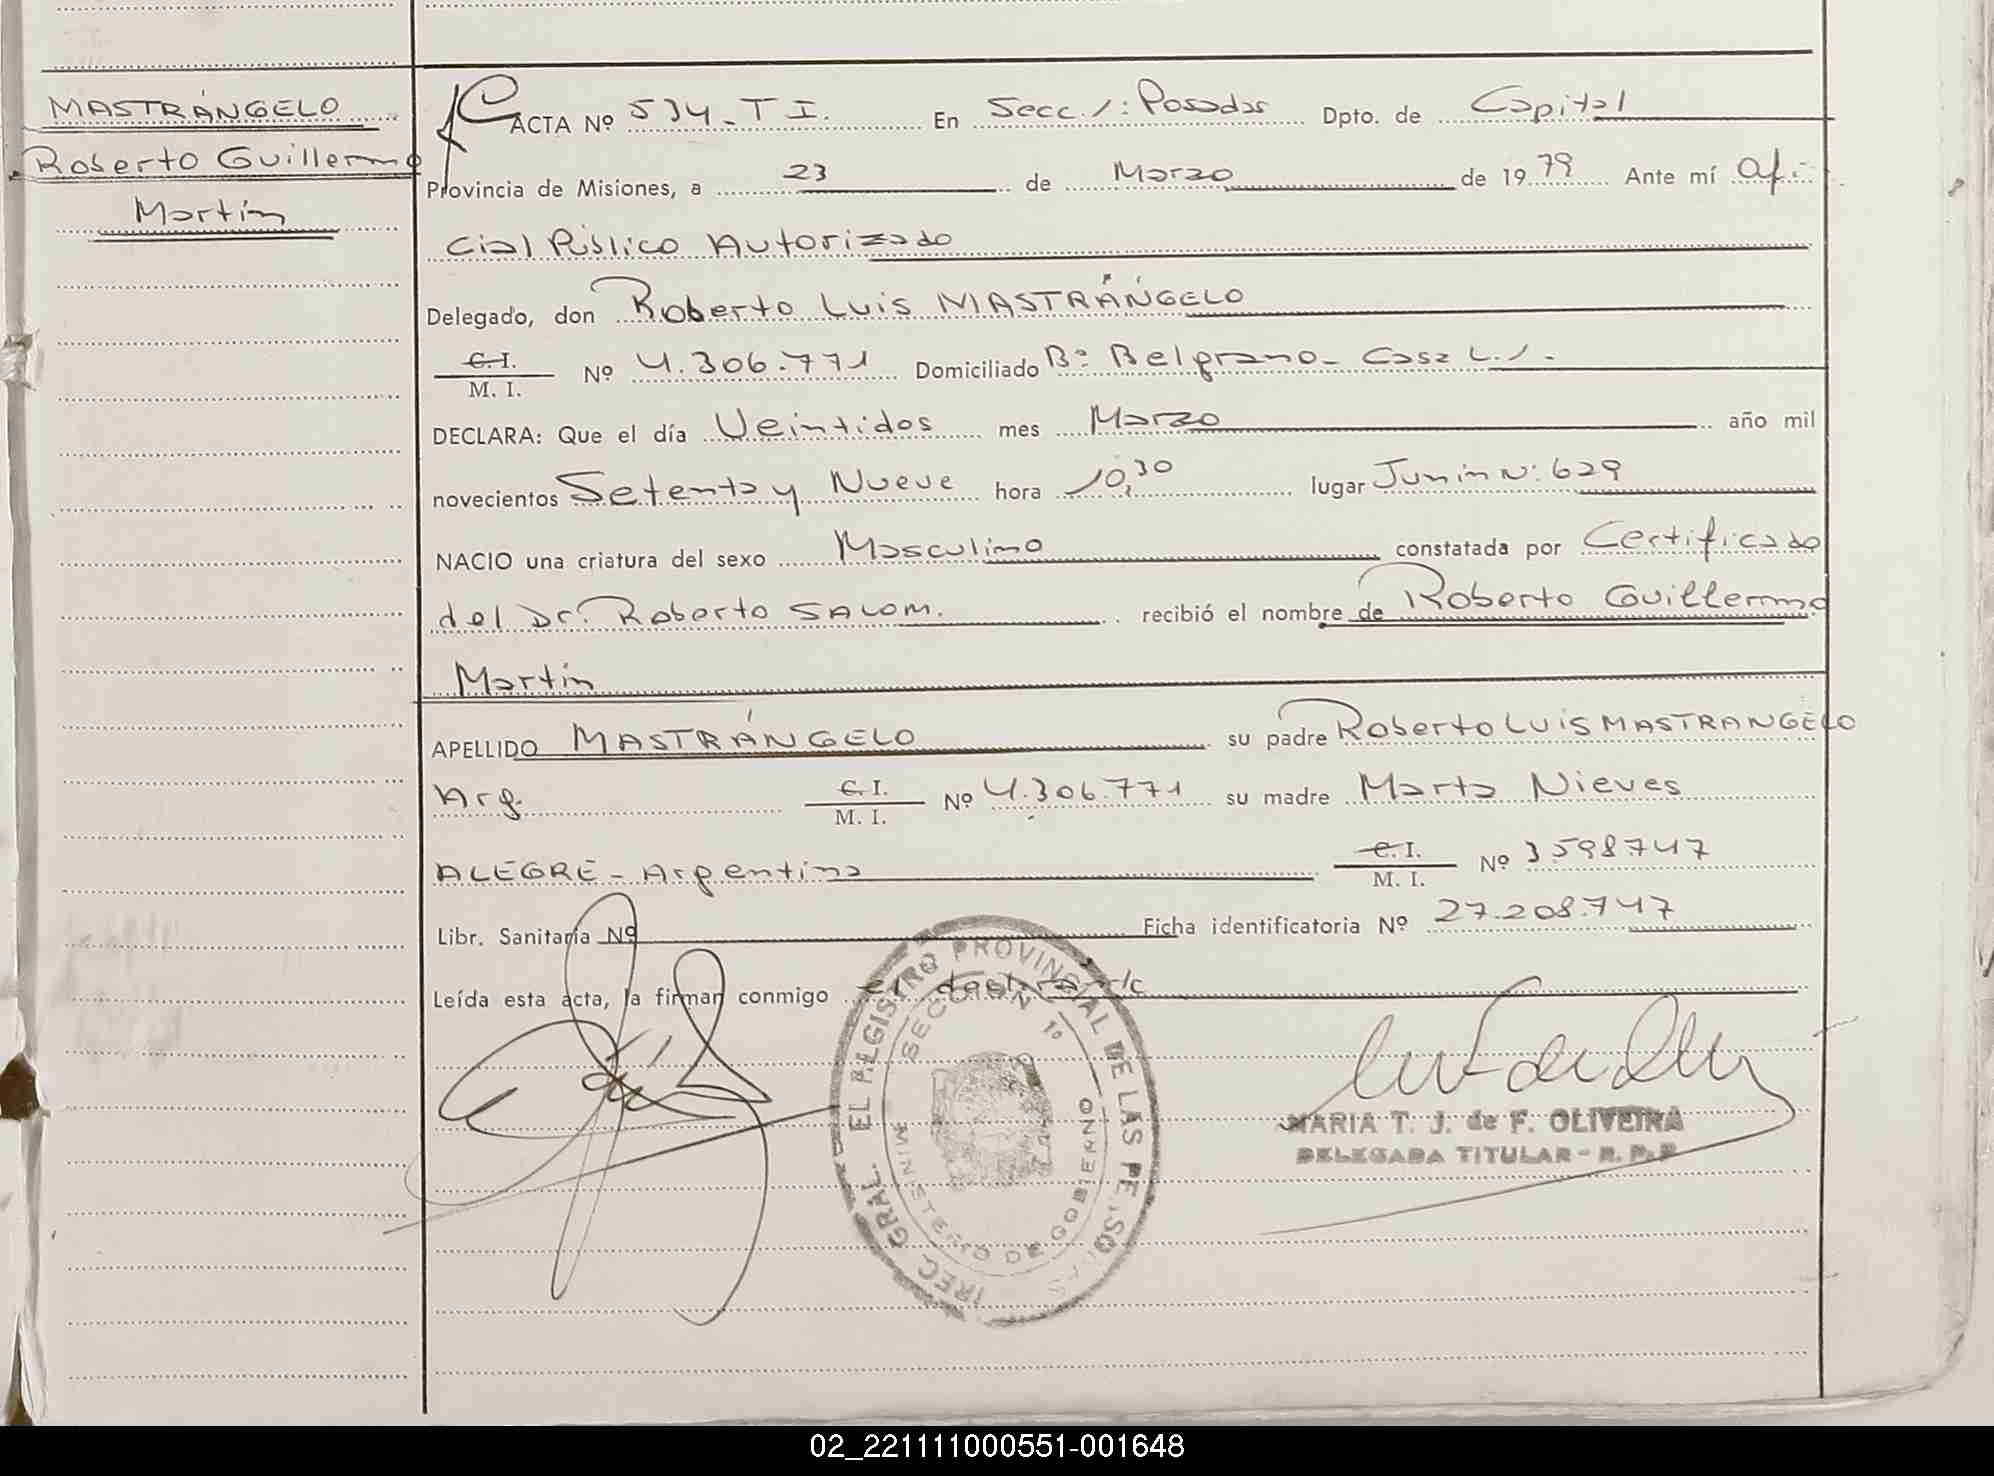 MASTRÁNGELO
Roberto Guillermo
Martín
ACTA Nº 534-T I. En Secc. 1: Posadas Dpto. de Capital
Provincia de Misiones, a 23 de Marzo de 1979 Ante mí Ofi-
cial Público Autorizado
Delegado, don Roberto Luis MASTRÁNGELO
C. I.
M. I. Nº 4.306.771 Domiciliado Bº Belgrano- Casa L.1.-
DECLARA: Que el día Veintidos mes Marzo año mil
novecientos Setenta y Nueve hora 10,30 lugar Junin Nº 629
NACIO una criatura del sexo Masculino constatada por Certificado
del Dr. Roberto SALOM. recibió el nombre de Roberto Guillermo
Martín
APELLIDO MASTRÁNGELO su padre Roberto Luis MASTRANGELO
Arg. C. I.
M. I. Nº 4.306.771 su madre Marta Nieves
ALEGRE - Argentina C. I.
M. I. Nº 3598747
Libr. Sanitaria Nº Ficha identificatoria Nº 27.208.747
Leída esta acta, la firman conmigo el
IREC. GRAL. EL REGISTRO PROVINCIAL DE LAS PERSONAS
SECCION 1º
MINISTERIO DE GOBIERNO
MARIA T. J. de F. OLIVEIRA
DELEGADA TITULAR - R. P. P.
02_221111000551-001648